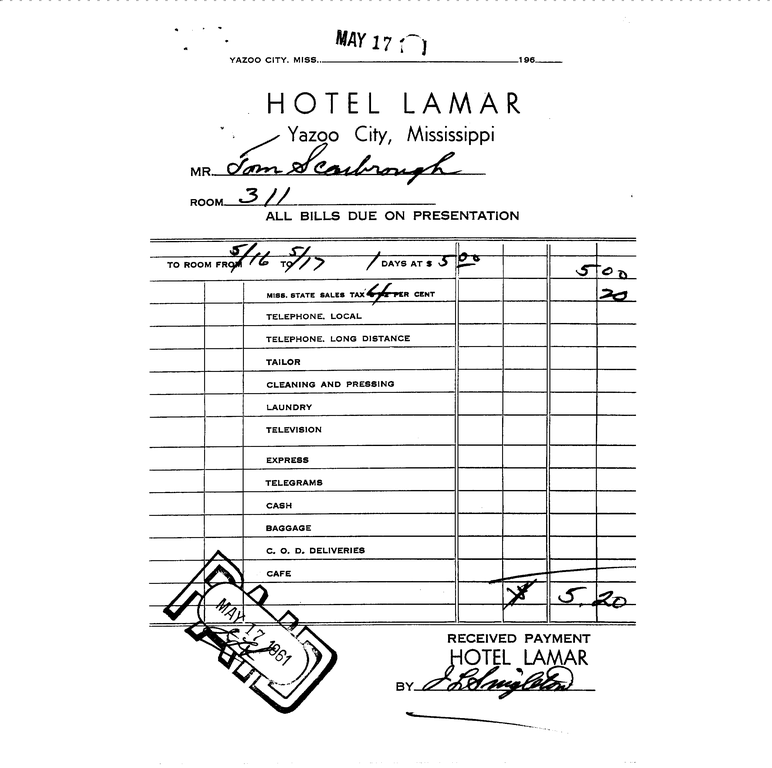 MAY 17
YAZOO CITY, MISS. 196
HOTEL LAMAR
Yazoo City, Mississippi
MR. Tom Scarbrough
ROOM 311
ALL BILLS DUE ON PRESENTATION
TO ROOM FROM 5/16 TO 5/17 1 DAYS AT $ 5 00 5 00
MISS. STATE SALES TAX PER CENT 20
TELEPHONE, LOCAL
TELEPHONE, LONG DISTANCE
TAILOR
CLEANING AND PRESSING
LAUNDRY
TELEVISION
EXPRESS
TELEGRAMS
CASH
BAGGAGE
C. O. D. DELIVERIES
CAFE
$ 5.20
PAID
MAY 17 1961
RECEIVED PAYMENT
HOTEL LAMAR
BY J L Singleton